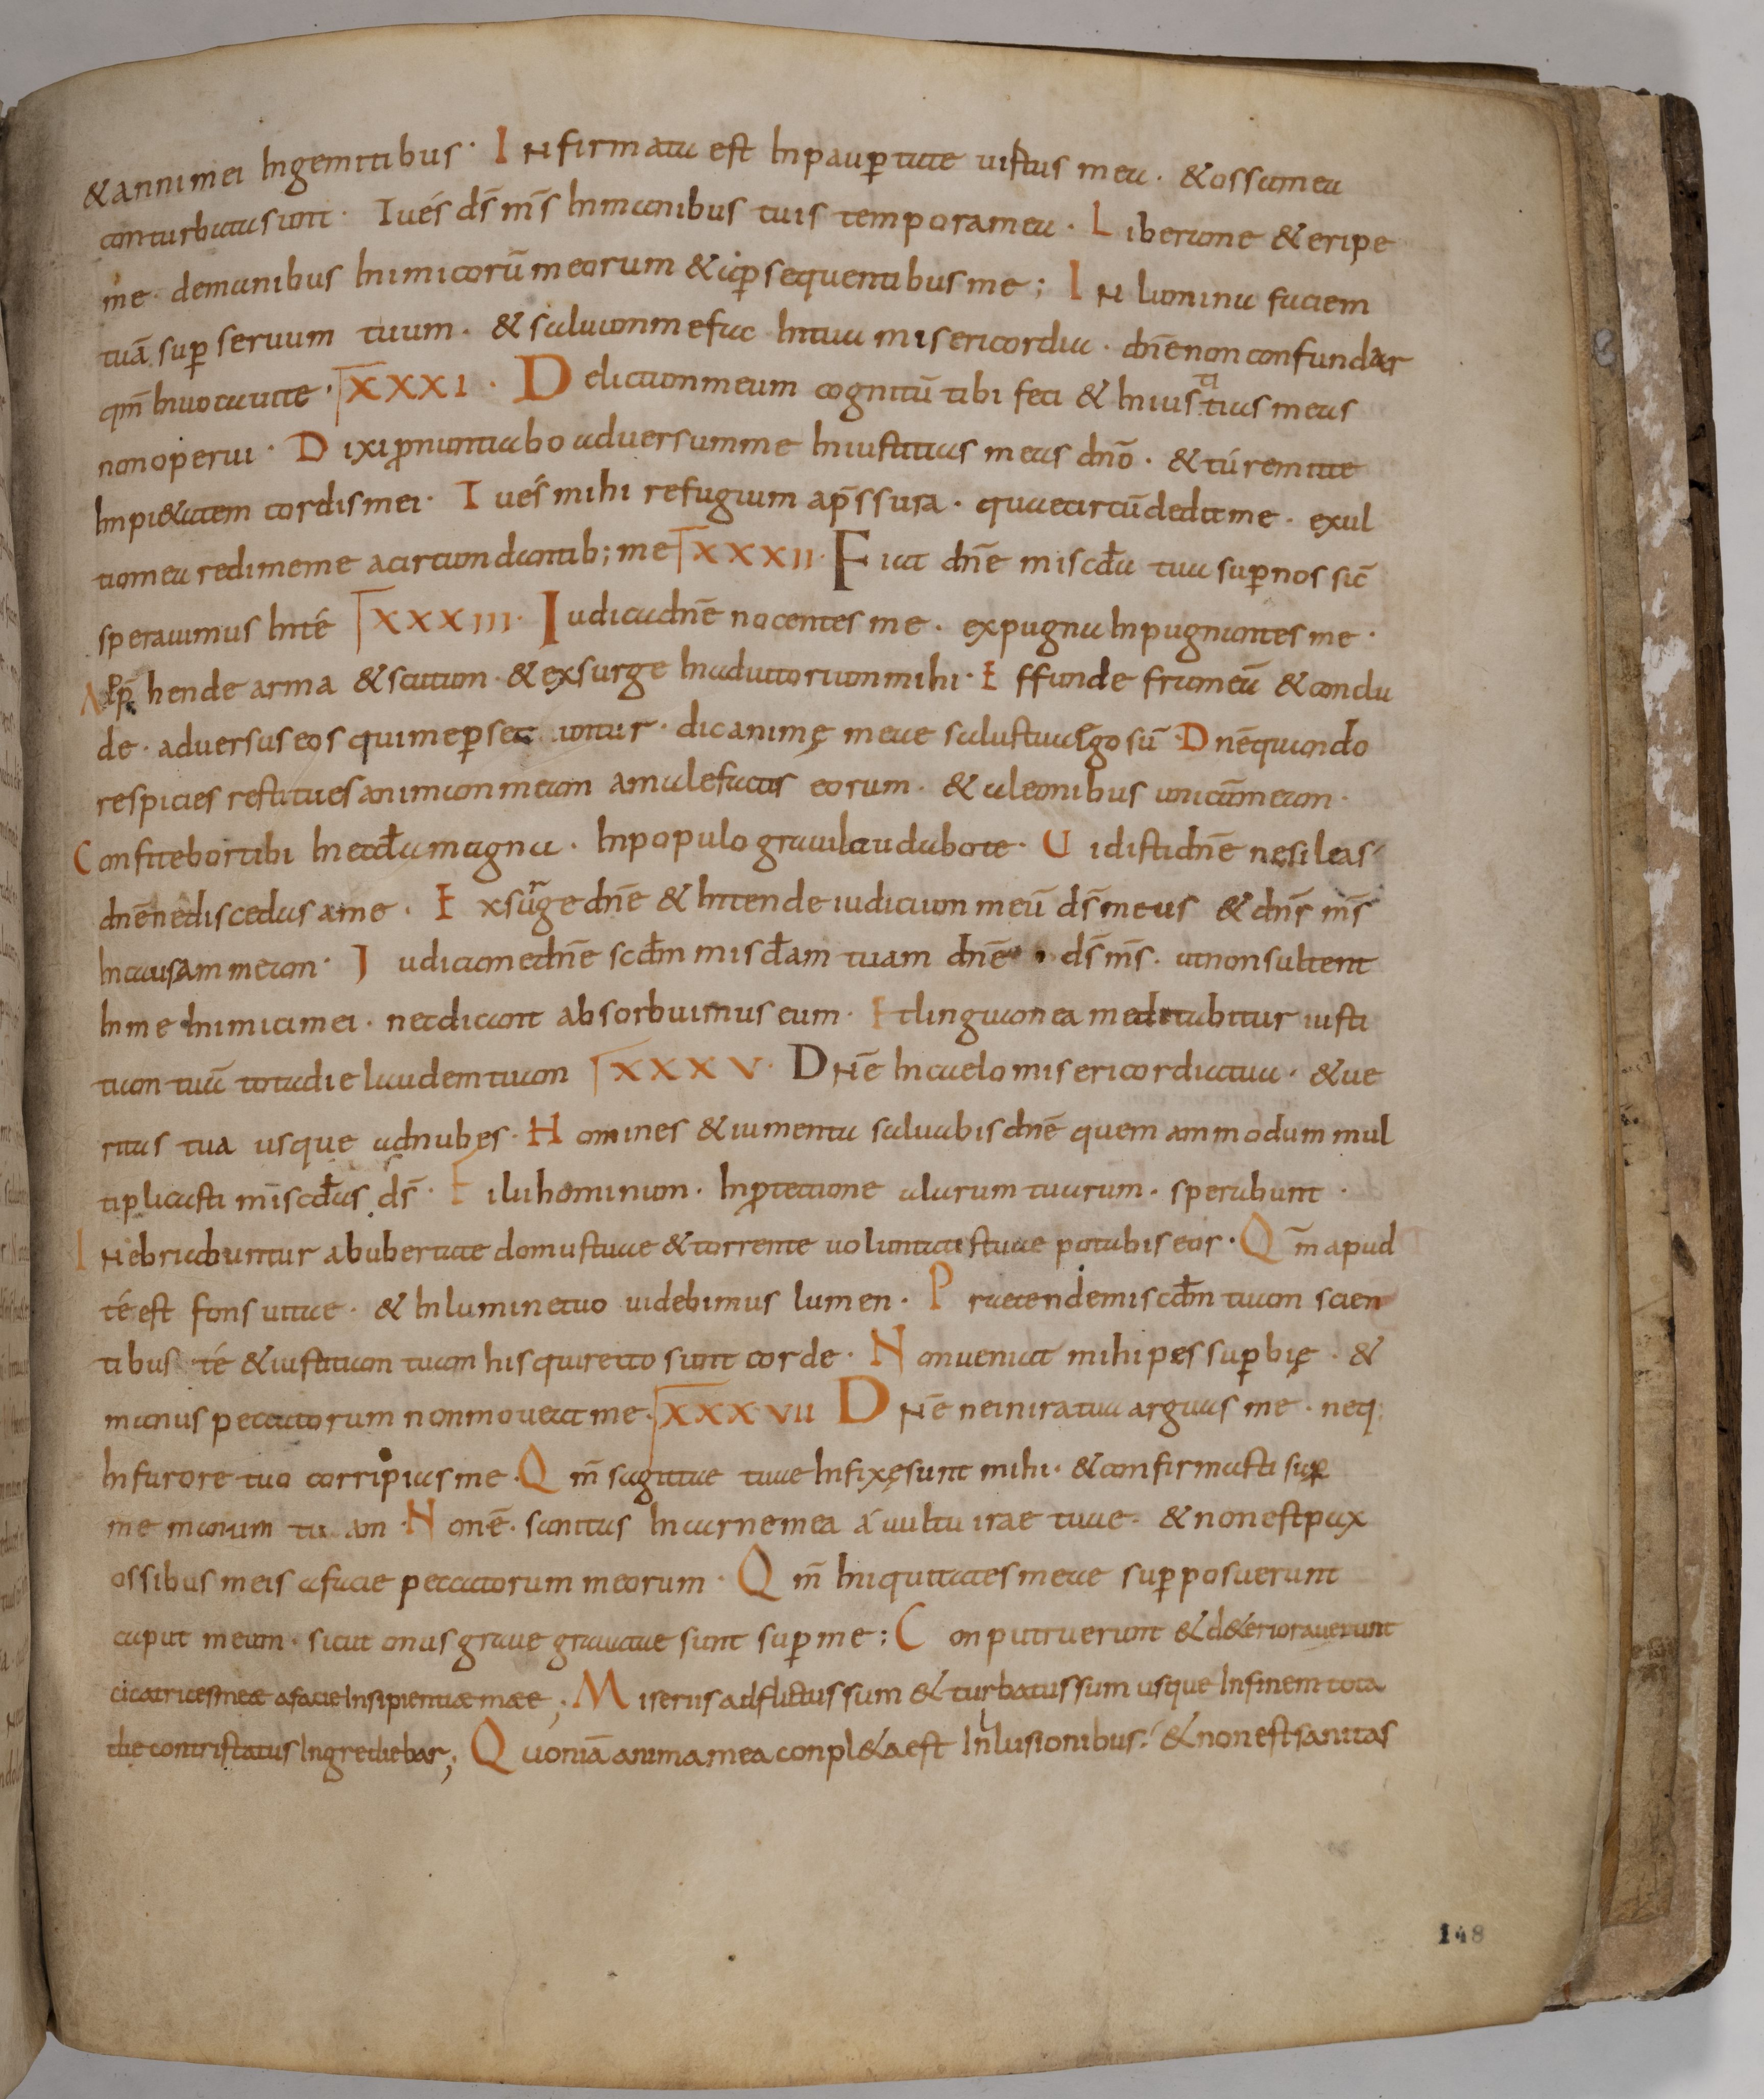 & anni mei In gemitibus · INfirmata est In paup̄tate uirtus mea · & ossa mea
conturbata sunt · Tu és d̄s m̄s In manibus tuis tempora mea · Libera me & eripe
me de manibus Inimicorū meorum & a p̄sequentibus me ; IN lumina faciem
tuā sup̄ seruum tuum · & saluum me fac In tua misericordia · dn̄e non confundar
qm̄ Inuocaui te · XXXI · Delictum meum cognitū tibi feci & Iniustitias meas
non operui · Dixi p̄nuntiabo aduersum me Iniustitias meas dn̄o · & tú remiste
Inpi&atem cordis mei · Tu és mihi refugium a p̄ssura · quae circū dedit me · exul
tio mea redime me a circumdantib; me XXXII · Fiat dn̄e miscd̄a tua sup̄ nos sic̄
sperauimus In té XXXIII · Iudica dn̄e nocentes me · expugna Inpugnantes me ·
App̄hende arma & scutum · & exsurge In adiutorium mihi · Effunde frameā & conclu
de · aduersus eos qui me p̄secuntur · dic animę meae salus tua ego sū · Dn̄e quando
respicies restitues animam meam a malefactis eorum · & a leonibus unicā meam ·
Confitebor tibi In eccl̄a magna · In populo graui laudabo te · Uidisti dn̄e ne sileas
dn̄e ne discedas a me · Exsurge dn̄e & Intende iudicium meū d̄s meus & dn̄s m̄s
In causam meam · Iudica me dn̄e scdm̄ miscd̄am tuam dn̄e d̄s m̄s · ut non sultent
In me Inimici mei · nec dicant absorbuimus eum · Et lingua mea meditabitur iusti
tiam tuā tota die laudem tuam XXXV · DNē In caelo misericordia tua · & ue
ritas tua usque ad nubes · Homines & iumenta saluabis dn̄e quem ammodum mul
tiplicasti miscd̄as d̄s · Filii hominum · In p̄tectione alarum tuarum · sperabunt ·
INebriabuntur ab ubertate domus tuae & torrente uoluntatis tuae potabis eos · Qm̄ apud
té est fons uitae · & In lumine tuo uidebimus lumen · Praetende miscdm̄ tuam scien
tibus té & iustitiam tuam his qui recto sunt corde · Non ueniat mihi pes sup̄bię · &
manus peccatorum non moueat me · XXXVII DNē ne in ira tua arguas me · neq;
In furore tuo corripias me · Qm̄ sagittae tuae Infixę sunt mihi · & confirmasti sup̄
me manum tuam · Non ē · sanitas In carne mea á uultu irae tuae · & non est pax
ossibus meis a facie peccatorum meorum · Qm̄ Iniquitates meae sup̄posuerunt
caput meum · sicut onus graue grauatae sunt sup̄ me ; Conputruerunt & d&eriorauerunt
cicatrices meæ a facie Insipientiæ mææ ; Miseriis adflictus sum & turbatus sum usque In finem tota
die contristatus Ingrediebar ; Quoniā anima mea conpl&a est Inlusionibus : & non est sanitas
148